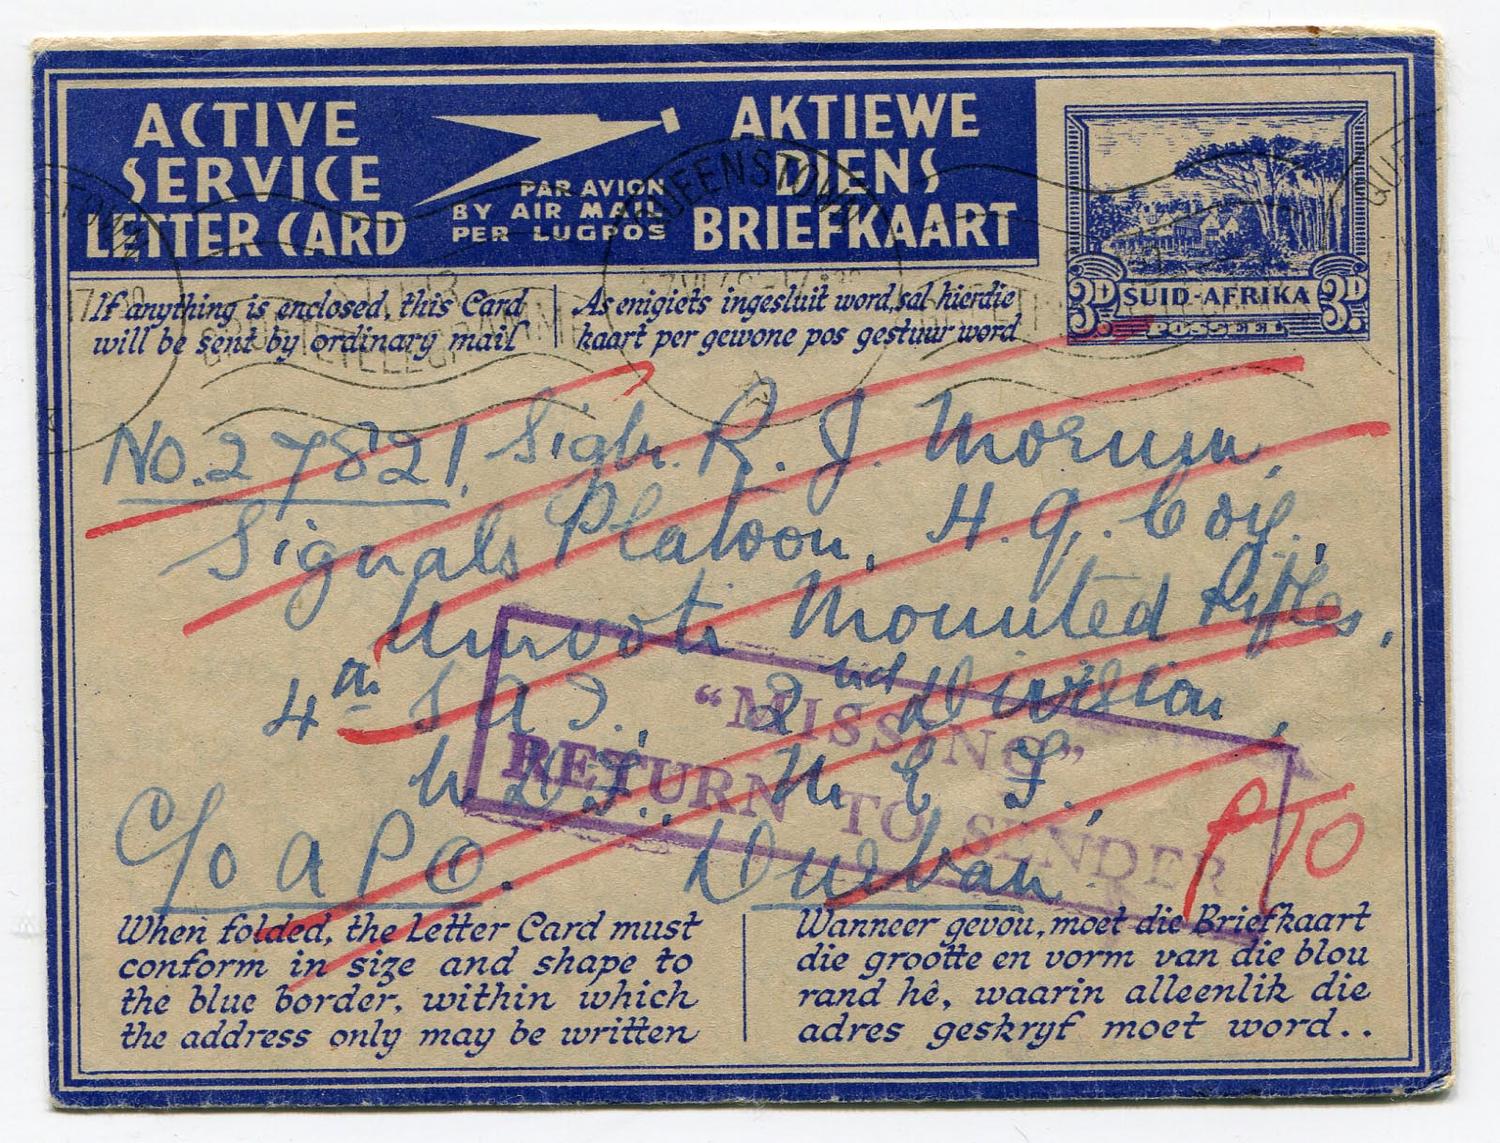 ACTIVE
SERVICE
LETTER CARD
PAR AVION
BY AIR MAIL
PER LUGPOS
AKTIEWE
DIENS
BRIEFKAART
3D SUID-AFRIKA 3D
POSSEEL
QUEENSTOWN
If anything is enclosed, this Card
will be sent by ordinary mail
As enigiets ingesluit word, sal hierdie
kaart per gewone pos gestuur word
No. 27821, Siglr. R. J. Morum,
Signals Platoon, H. Q. Coy.,
Umvoti Mounted Rifles,
4th S A I., 2nd Division,
U D F., M E F.,
C/o A P O. Durban.
"MISSING"
RETURN TO SENDER
PTO
When folded, the Letter Card must
conform in size and shape to
the blue border, within which
the address only may be written
Wanneer gevou, moet die Briefkaart
die grootte en vorm van die blou
rand hê, waarin alleenlik die
adres geskryf moet word..